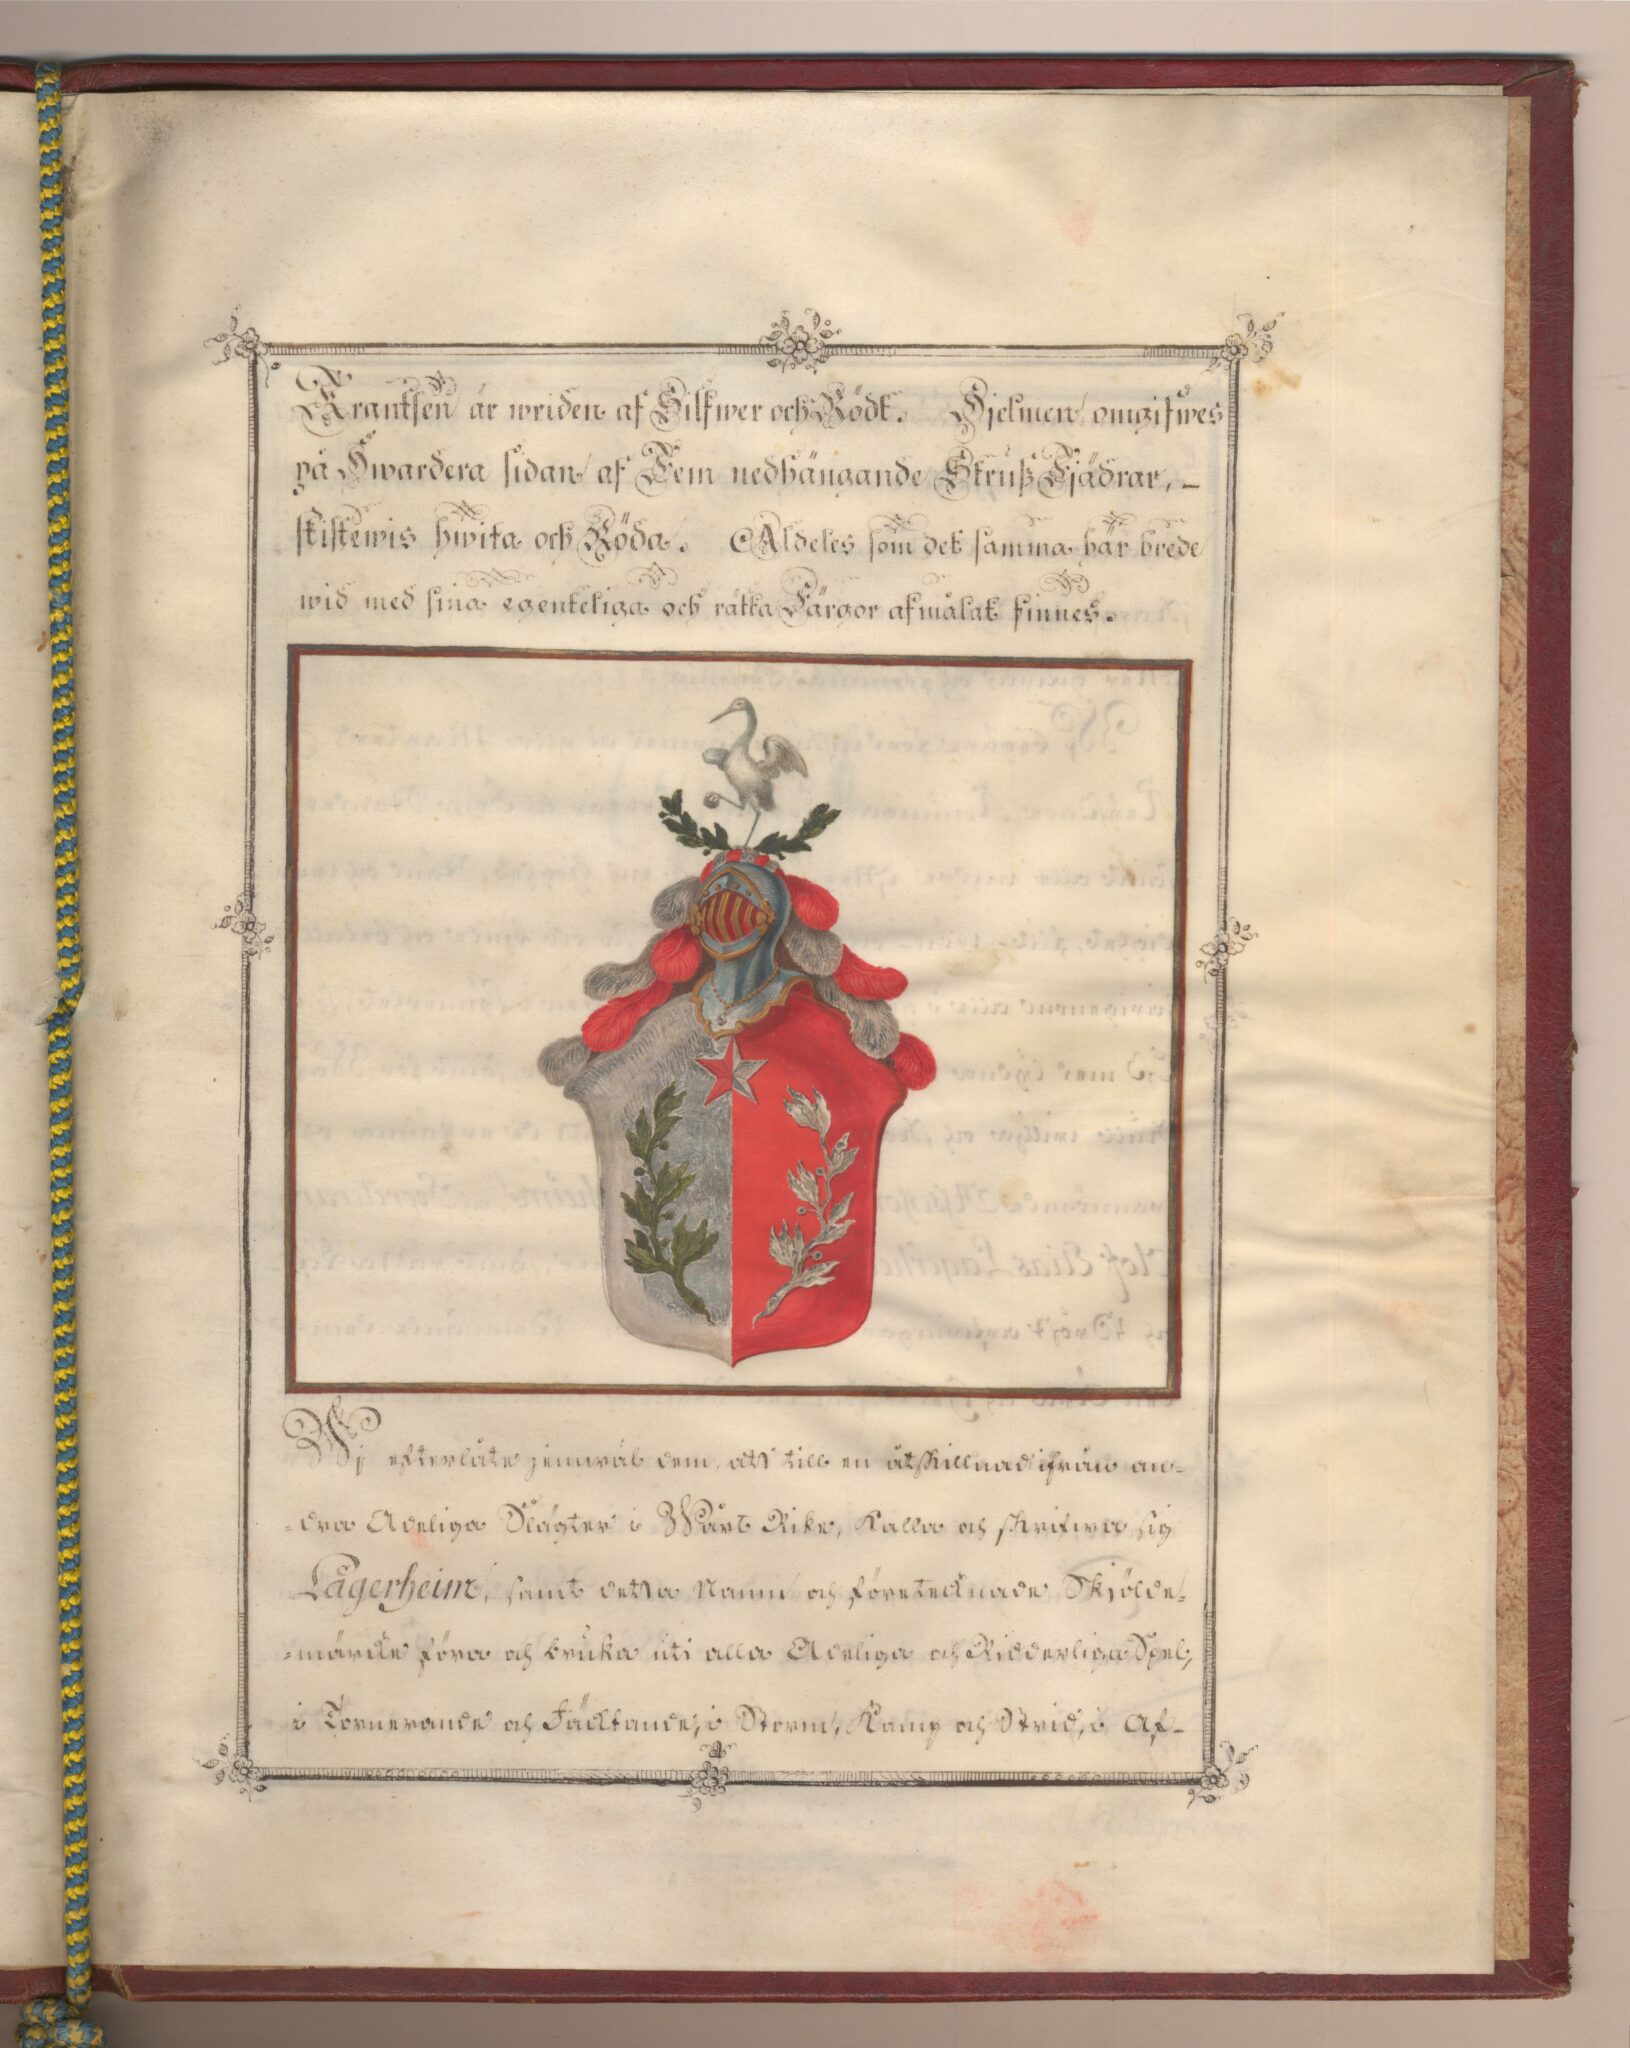 Krantsen är wriden af Silfwer och Rödt. Hjelmen omgifwes
på Hwardera sidan af Fem nedhängande Struß Fjädrar, –
skiftewis hwita och Röda. Aldeles som det samma här brede
wid med sina egenteliga och rätta Färgor afmålat finnes.
Wj efterlåte jemwäl dem, att till en åtskillnad ifrån an=
=dra Adeliga Slägter i Wårt Rike, kalla och skrifwa sig
Lagerheim, samt detta Namn och företecknade Skjölde=
=märcke föra och bruka uti alla Adeliga och Ridderliga Spel,
i Tornerande och Fäcktande, i Storm, Kamp och Strid, i Af–